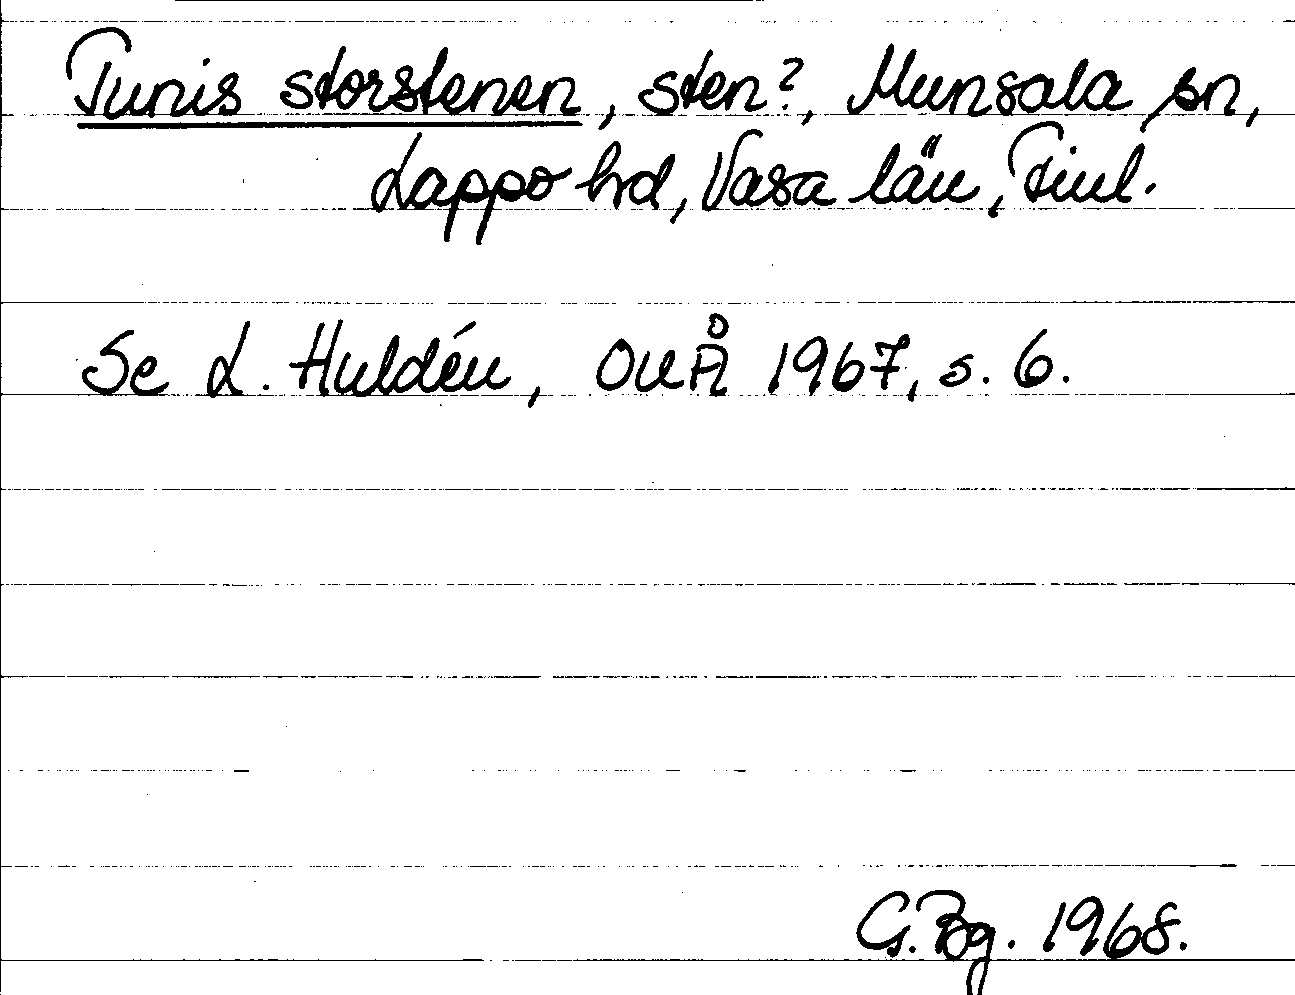 Tunis storstenen, sten?, Munsala sn,
Lappo hd, Vasa län, Finl.
Se L. Huldén, OUÅ 1967, s. 6.
G. Bg. 1968.